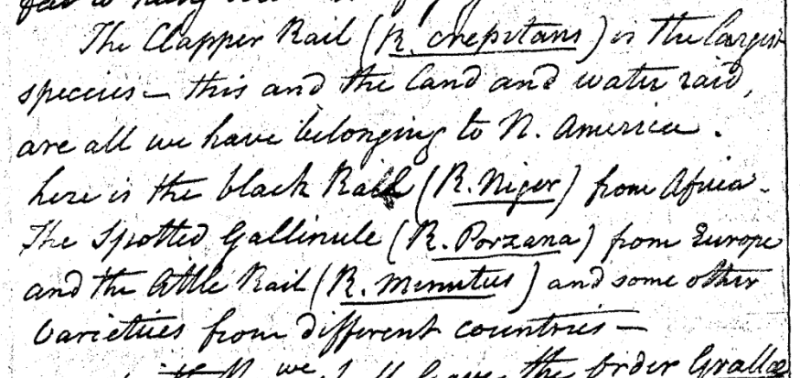 The Clapper Rail (R. crepitans) is the largest
species – this and the land and water raid,
are all we have belonging to N. America.
here is the black Rail (R. Niger) from Africa.
The Spotted Gallinule (R. Porzana) from Europe
and the little Rail (R. Minutus) and some other
Varieties from different countries –
we the order Grallae